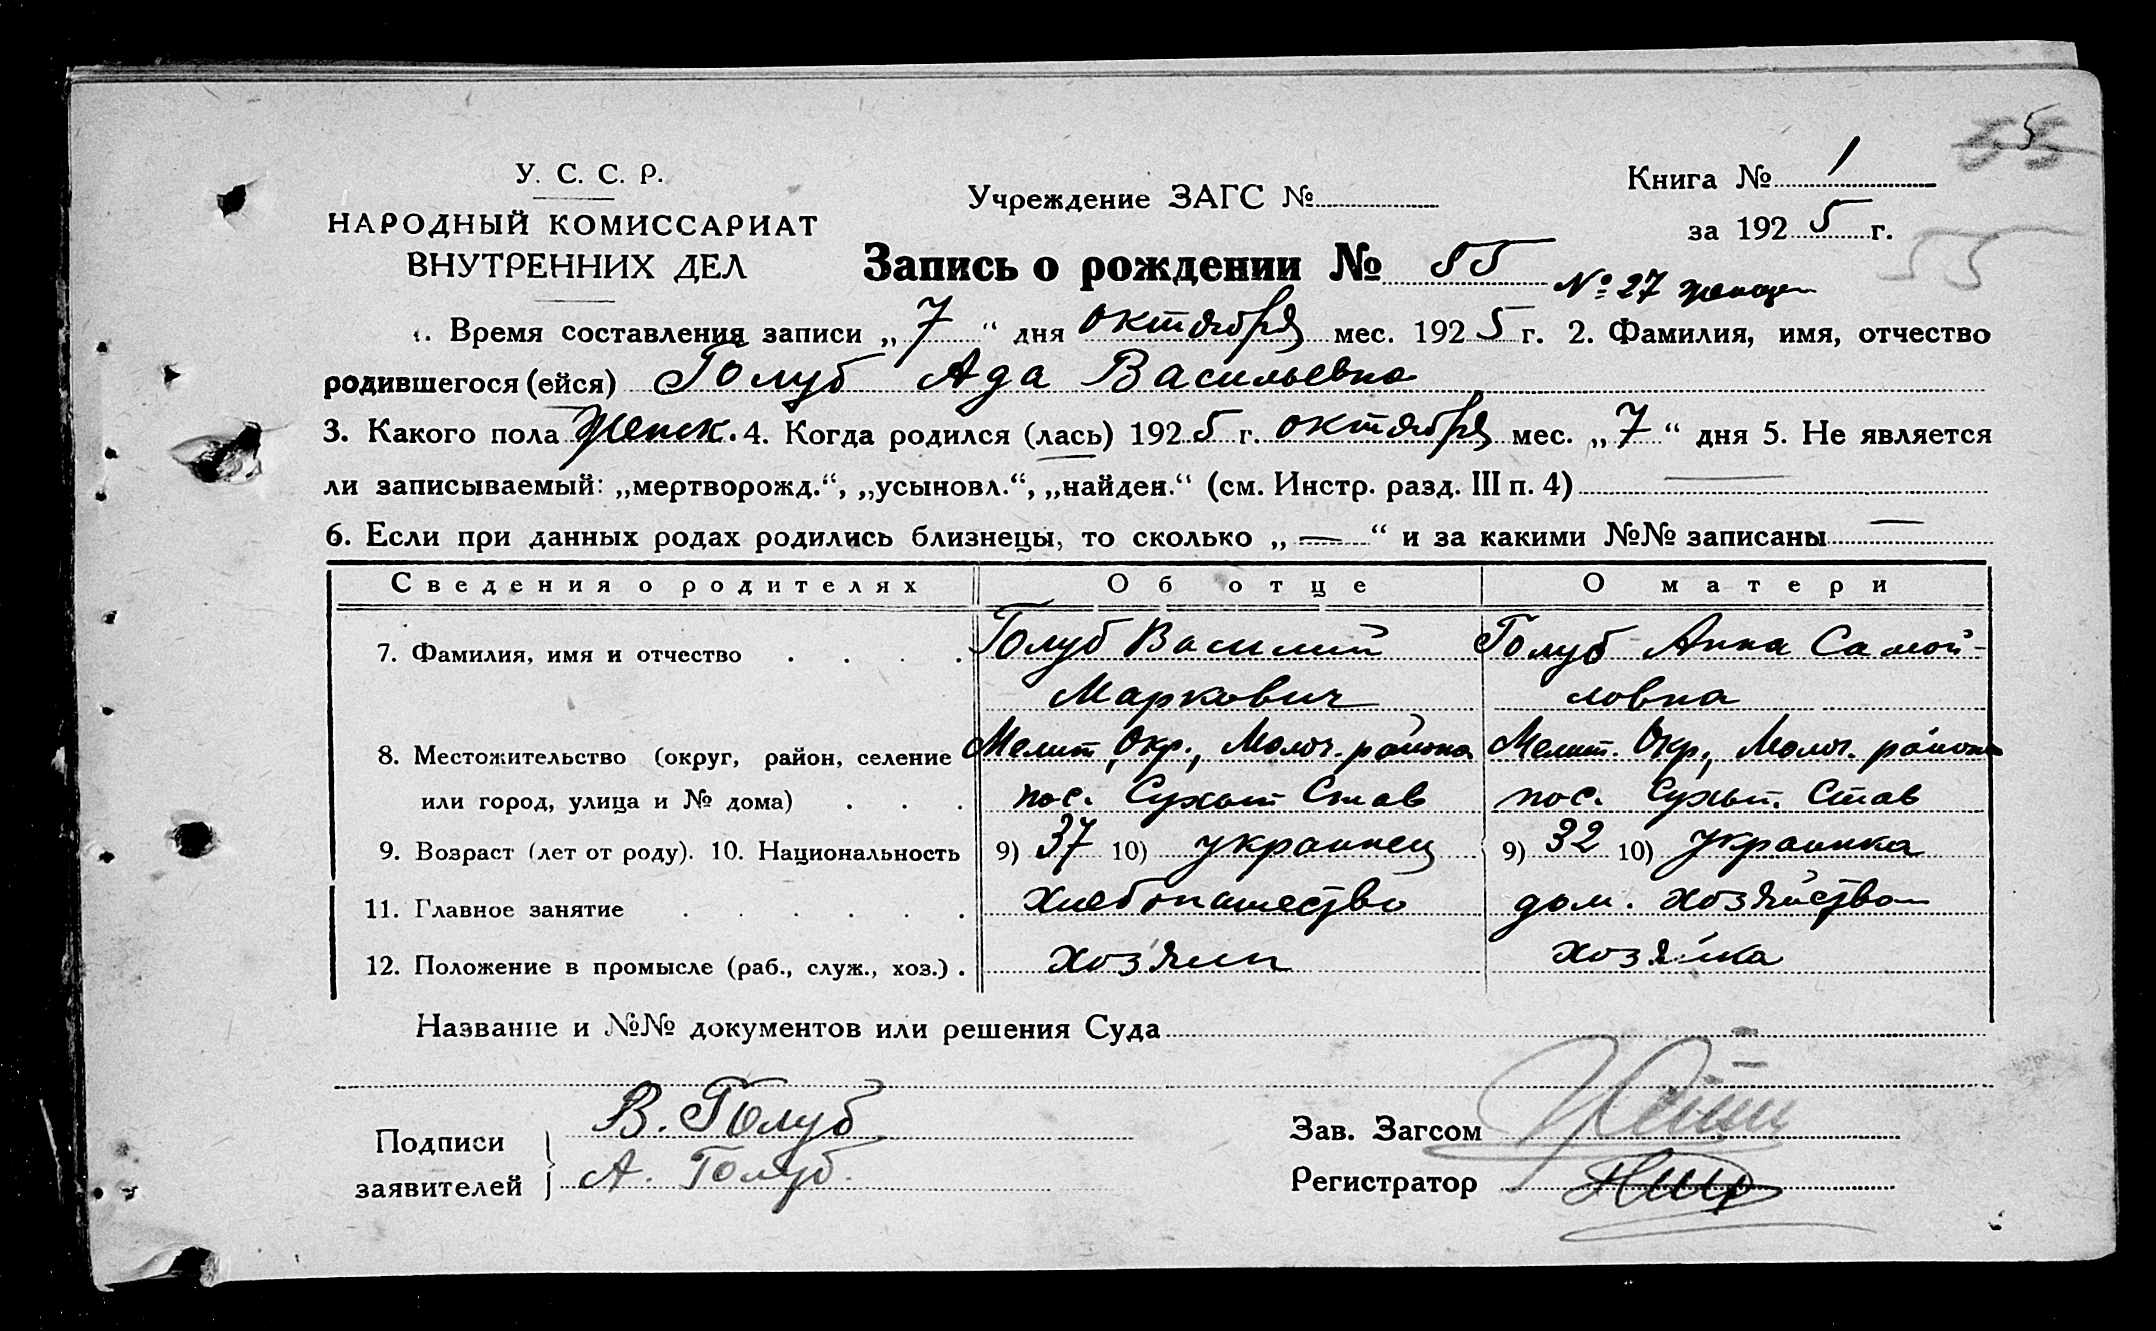 55
У. С. С. Р.
НАРОДНЫЙ КОМИССАРИАТ
ВНУТРЕННИХ ДЕЛ
Учреждение ЗАГС №
Книга № 1
за 1925 г.
55
Запись о рождении № 55
№ 27 женщ
1. Время составления записи „7“ дня октября мес. 1925 г. 2. Фамилия, имя, отчество
родившегося (ейся) Голуб Ада Васильевна
3. Какого пола женск. 4. Когда родился (лась) 1925 г. октября мес. „7“ дня 5. Не является
ли записываемый: „мертворожд.“, „усыновл.“, „найден.“ (см. Инстр. разд. III п. 4) —
6. Если при данных родах родились близнецы, то сколько „—“ и за какими №№ записаны —
Сведения о родителях Об отце О матери
7. Фамилия, имя и отчество . . . . Голуб Василий Голуб Анна Самой-
Маркович ловна
8. Местожительство (округ, район, селение Мелит. Окр., Молоч. района Мелит. Окр., Молоч. района
или город, улица и № дома) . . . пос. Став пос. Став
9. Возраст (лет от роду). 10. Национальность 9) 37 10) украинец 9) 32 10) украинка
11. Главное занятие . . . . . . хлебопашество дом. хозяйство
12. Положение в промысле (раб., служ., хоз.) . хозяин хозяйка
Название и №№ документов или решения Суда
Подписи В. Голуб
заявителей А. Голуб.
Зав. Загсом
Регистратор